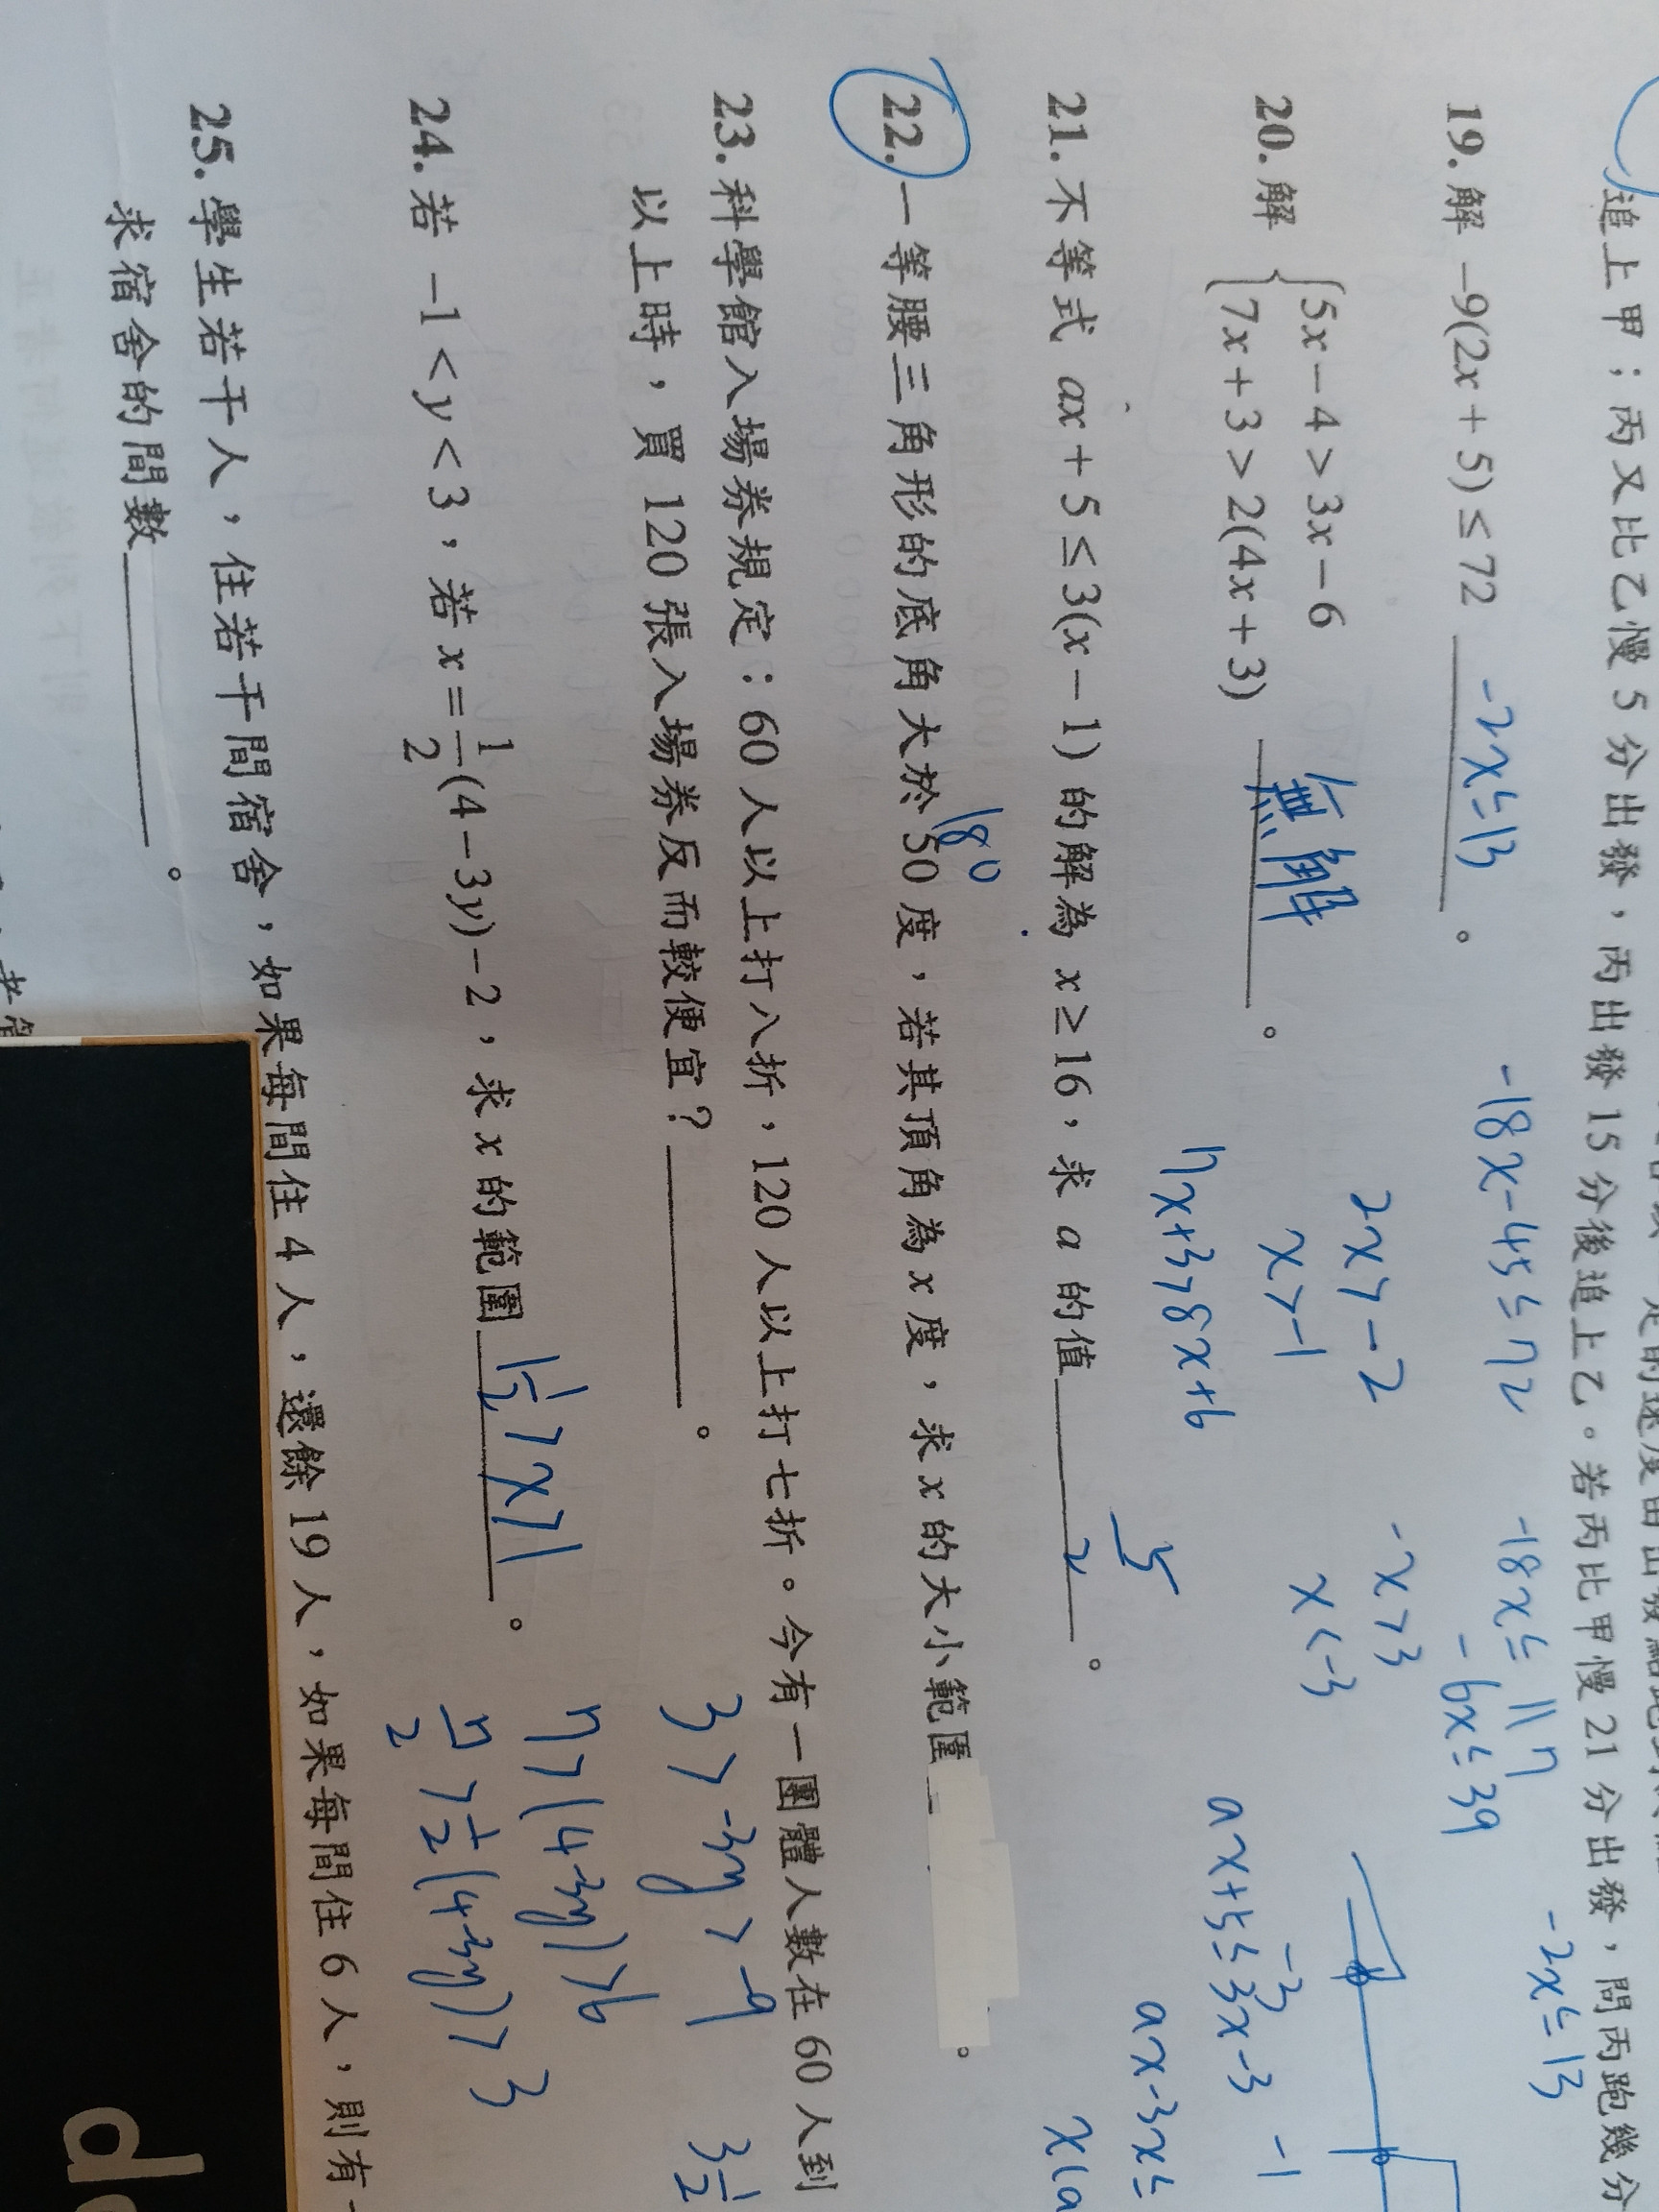 追上甲；丙又比乙慢 5 分出發，丙出發 15 分後追上乙。若丙比甲慢 21 分出發，問丙跑幾分
19. 解 -9(2x+5)≤72 -2x≤13 。
-18x-45≤72
-18x≤117
-6x≤39
-2x≤13
20. 解 {5x-4>3x-6
7x+3>2(4x+3) 無解 。
2x>-2
x>-1
7x+3>8x+6
-x>3
x<-3
-3
-1
21. 不等式 ax+5≤3(x-1) 的解為 x≥16，求 a 的值 5/2 。
ax+5≤3x-3
ax-3x≤
x(a
22. 一等腰三角形的底角大於 50 度，若其頂角為 x 度，求 x 的大小範圍 。
180
23. 科學館入場券規定：60 人以上打八折，120 人以上打七折。今有一團體人數在 60 人到
以上時，買 120 張入場券反而較便宜？ 。
24. 若 -1<y<3，若 x=1/2(4-3y)-2，求 x 的範圍 1 1/2>x>1 。
3>-3y>-9
7>(4-3y)>6
7/2>1/2(4-3y)>3
3 1/2
25. 學生若干人，住若干間宿舍，如果每間住 4 人，還餘 19 人，如果每間住 6 人，則有
求宿舍的間數 。